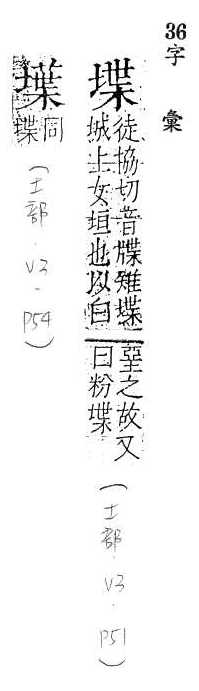 36字 彙
堞
徒協切音牒雉堞
城上女垣也以白
堊之故又
曰粉堞
(土部.V3.P51)
同
堞
(土部.V3.P54)